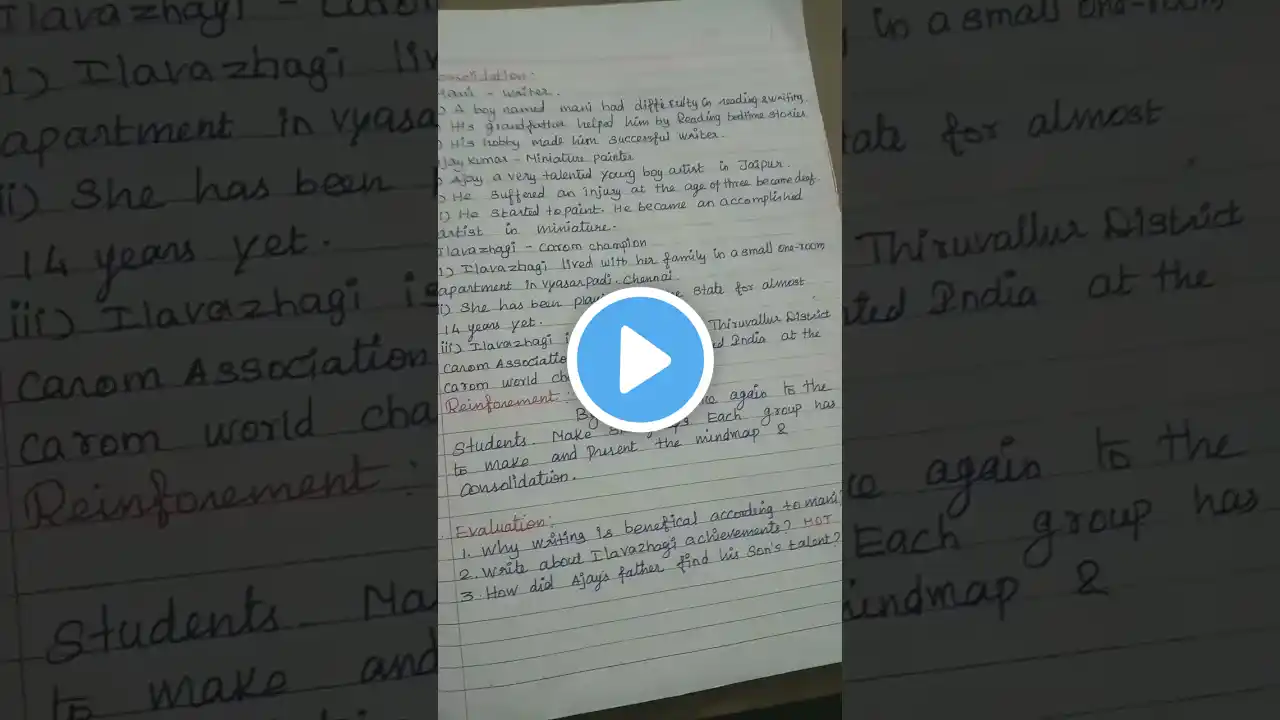 Consolidation:
Mani - Writer.
i) A boy named mani had difficulty in reading & writing.
His grandfather helped him by Reading bedtime stories
His hobby made him successful writer.
Ajay Kumar - Miniature painter
Ajay a very talented young boy artist in Jaipur.
He suffered an injury at the age of three became deaf.
He started to paint. He became an accomplished
artist in miniature.
Ilavazhagi - Carom champion
i) Ilavazhagi lived with her family in a small one-room
apartment in Vyasarpadi, Chennai
ii) She has been State for almost
14 years yet.
iii) Ilavazhagi is Thiruvallur District
Carom Association India at the
Carom world
Reinforement: again to the
Students. Make Each group has
to make and Present the mindmap &
Consolidation.
Evaluation:
1. Why writing is benefical according to mani?
2. Write about Ilavazhagi achievements? HOT
3. How did Ajay's father find his Son's talent?